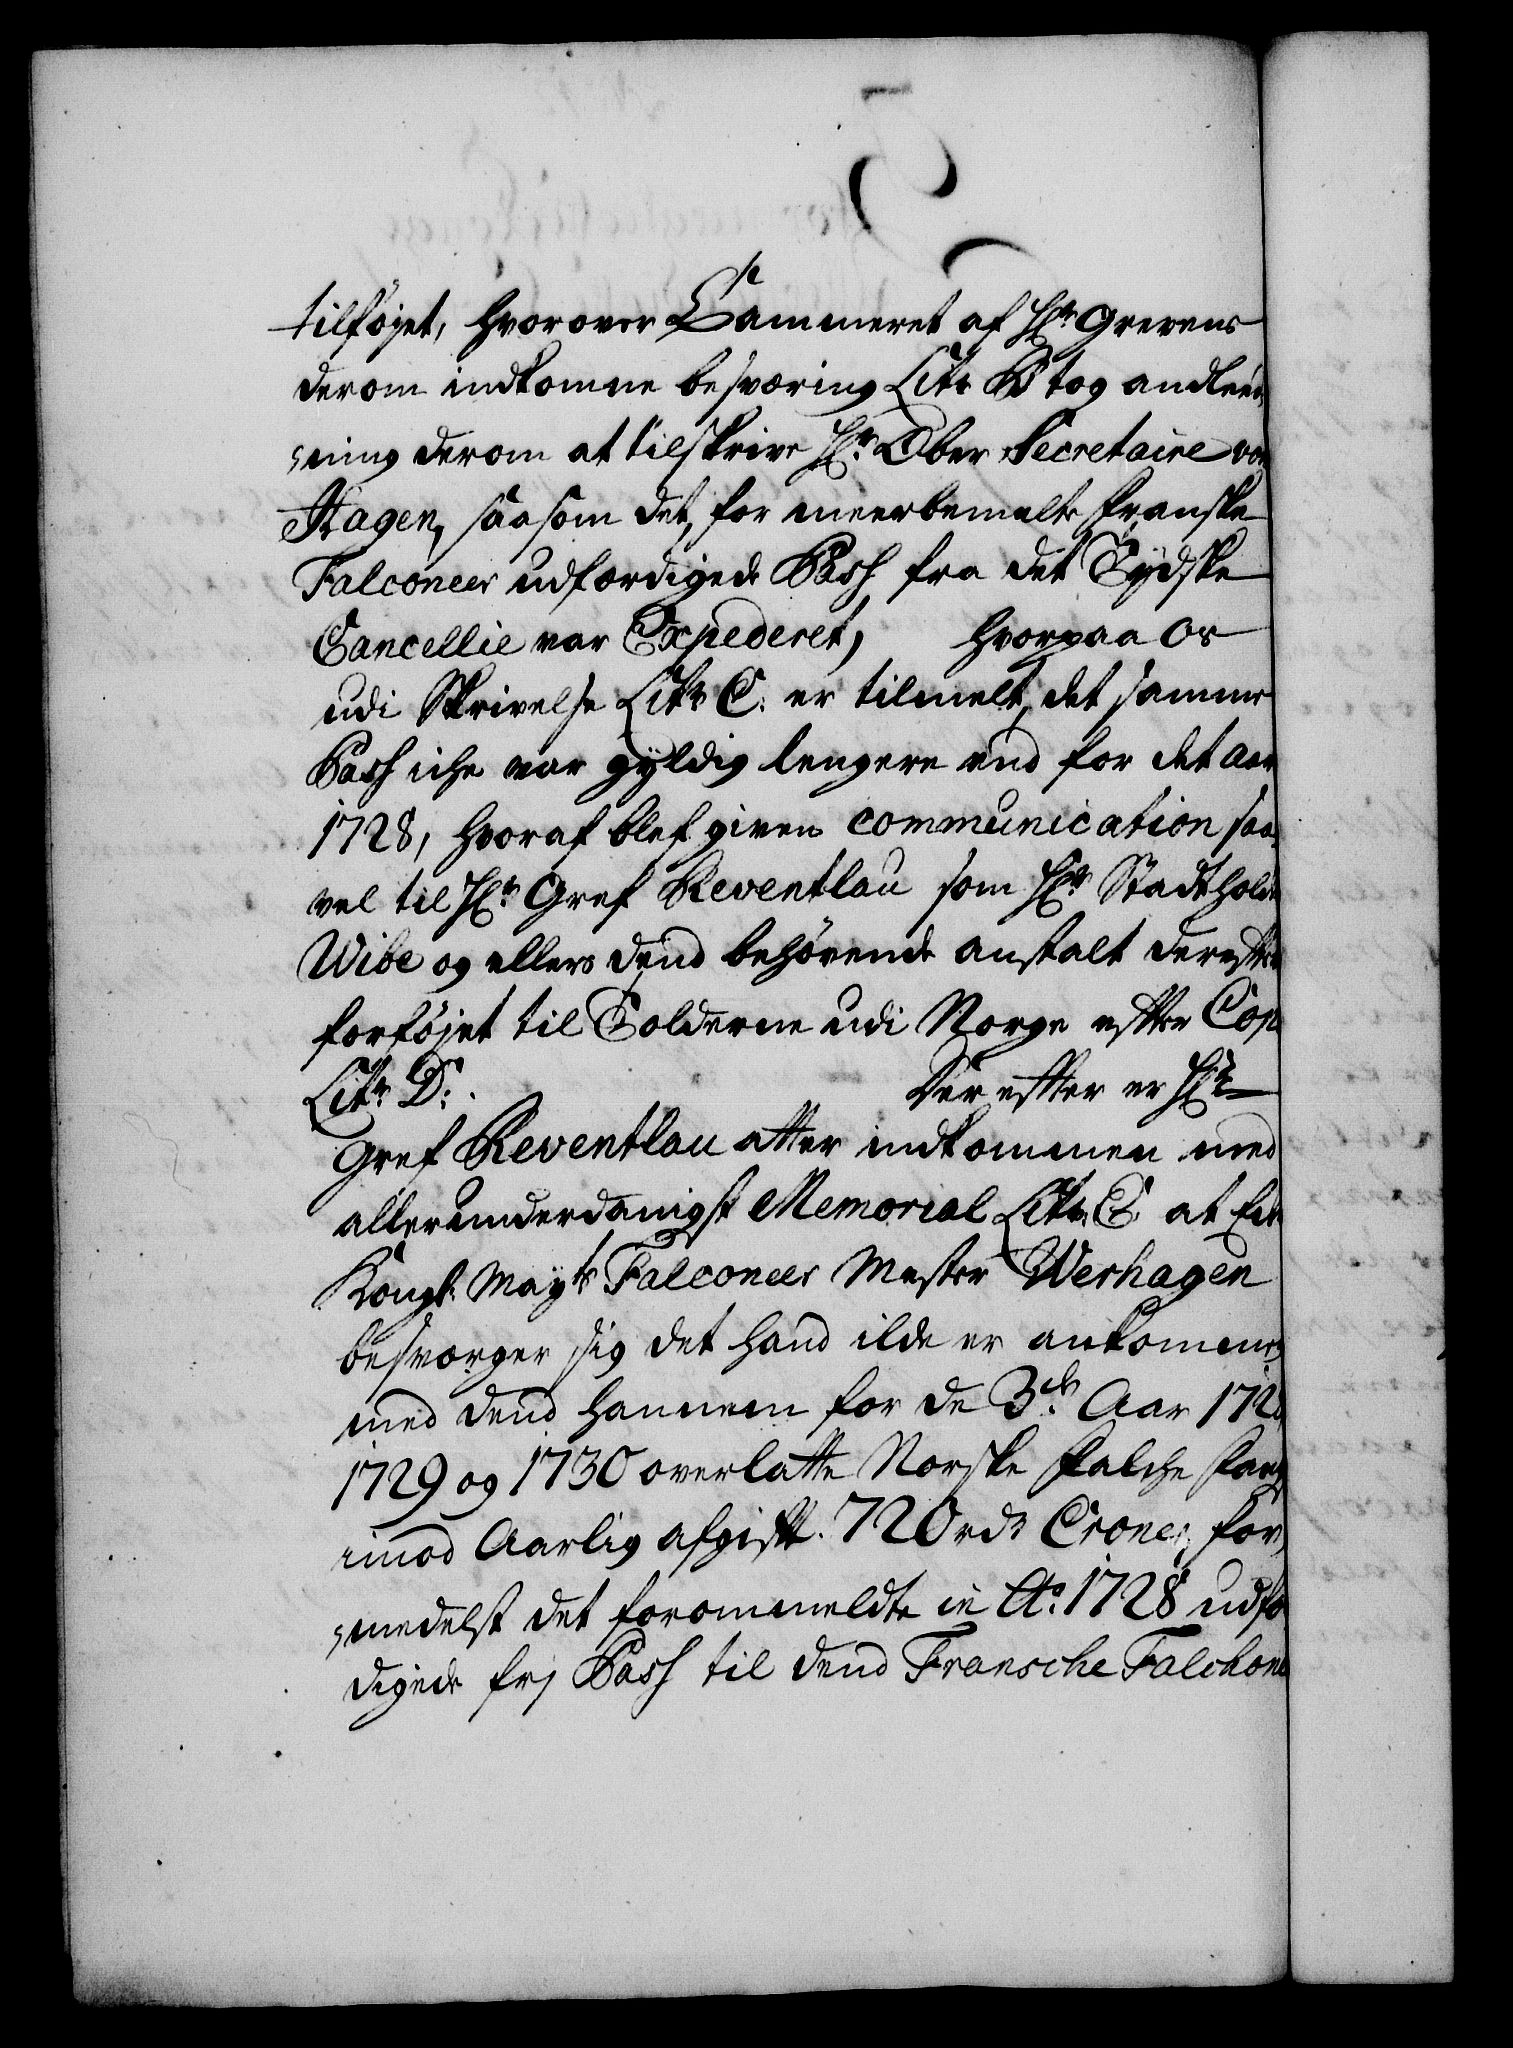 tilføjet, hvorover Cammeret af Hr. Grevens
derom indkomne besværing Litr. B tog andlee¬
¬ning derom at tilskrive Hr. Ober Secretaire von
Hagen, saasom det, for meerbemelte franske
Falconeer udfærdigede Pass fra det Tydske
Cancellie var Expederet, hvorpaa os
udi Skrivelse Litr. C: er tilmelt, det samme
Pass iche var gyldig lengere end for det Aar
1728, hvoraf blef given communication saa
vel til Hr. Gref Reventlau som Hr. Stadthold
Wibe og ellers dend behøvende anstalt derefter
forføjet til Tolderne udi Norge efter Cop.
Litr. D: Derefter er Hr.
Gref Reventlau atter indkommen med
allerunderdanigst Memorial Litr. E at Ed.
Kongl. Mayts Falconeer Mester Werhagen
besværger sig det hand ilde er ankommen
med dend hannem for de 3de Aar 1728
1729 og 1730 overlatte Norske Falche Fang
imod Aarlig afgift. 720 rdr Croner, for
¬medelst det forommeldte in Ao. 1728 udfæ
digede frj Pass til dend Fransche Falchone